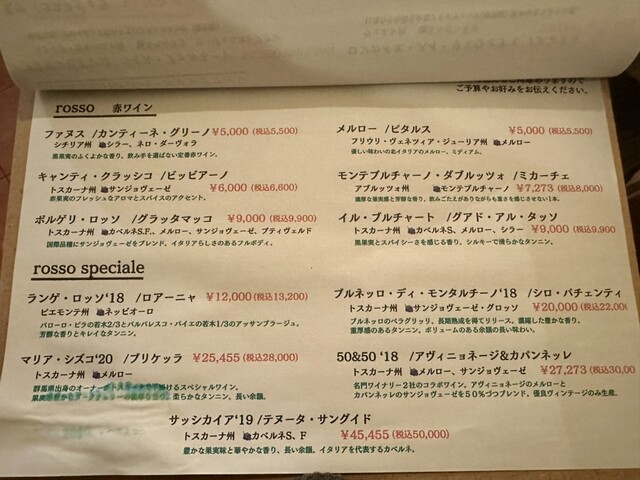 ご予算やお好みをお伝えください。
rosso 赤ワイン
ファヌス /カンティーネ・グリーノ ¥5,000 (税込5,500)
シチリア州 シラー、ネロ・ダーヴォラ
黒果実のふくよかな香り。飲み手を選ばない定番赤ワイン。
キャンティ・クラッシコ /ビッビアーノ
トスカーナ州 サンジョヴェーゼ ¥6,000 (税込6,600)
赤果実のフレッシュなアロマとスパイスのアクセント。
ボルゲリ・ロッソ /グラッタマッコ ¥9,000 (税込9,900)
トスカーナ州 カベルネS.F.、メルロー、サンジョヴェーゼ、プティヴェルド
国際品種にサンジョヴェーゼをブレンド、イタリアらしさのあるフルボディ。
メルロー /ピタルス ¥5,000 (税込5,500)
フリウリ・ヴェネツィア・ジューリア州 メルロー
優しい味わいの北イタリアのメルロー、ミディアム。
モンテプルチャーノ・ダブルッツォ /ミカーチェ
アブルッツォ州 モンテプルチャーノ ¥7,273 (税込8,000)
濃厚な果実感と芳醇な香り、飲みごたえがありながらも重さを感じさせない1本。
イル・ブルチャート /グアド・アル・タッソ
トスカーナ州 カベルネS、メルロー、シラー ¥9,000 (税込9,900
黒果実とスパイシーさを感じる香り、シルキーで滑らかなタンニン。
rosso speciale
ランゲ・ロッソ‘18 /ロアーニャ ¥12,000 (税込13,200)
ピエモンテ州 ネッビオーロ
バローロ・ピラの若木2/3とバルバレスコ・パイエの若木1/3のアッサンブラージュ。
芳醇な香りとキレイなタンニン。
マリア・シズコ‘20 /ブリケッラ ¥25,455 (税込28,000)
トスカーナ州 メルロー
群馬県出身のオーナー
柔らかなタンニン。長い余韻。
ブルネッロ・ディ・モンタルチーノ‘18 /シロ・パチェンティ
トスカーナ州 サンジョヴェーゼ・グロッソ ¥20,000 (税込22,00
ブルネッロのペラグリッリ、長期熟成を得てリリース。凝縮した豊かな香り。
重厚感のあるタンニン、ボリュームのある余韻の長い味わい。
50&50 ‘18 /アヴィニョネージ&カパンネッレ
トスカーナ州 メルロー、サンジョヴェーゼ ¥27,273 (税込30,00
名門ワイナリー2社のコラボワイン。アヴィニョネージのメルローと
カパンネッレのサンジョヴェーゼを50%づつブレンド、優良ヴィンテージのみ生産。
サッシカイア‘19 /テヌータ・サングイド
トスカーナ州 カベルネS、F ¥45,455 (税込50,000)
豊かな果実味と華やかな香り、長い余韻。イタリアを代表するカベルネ。